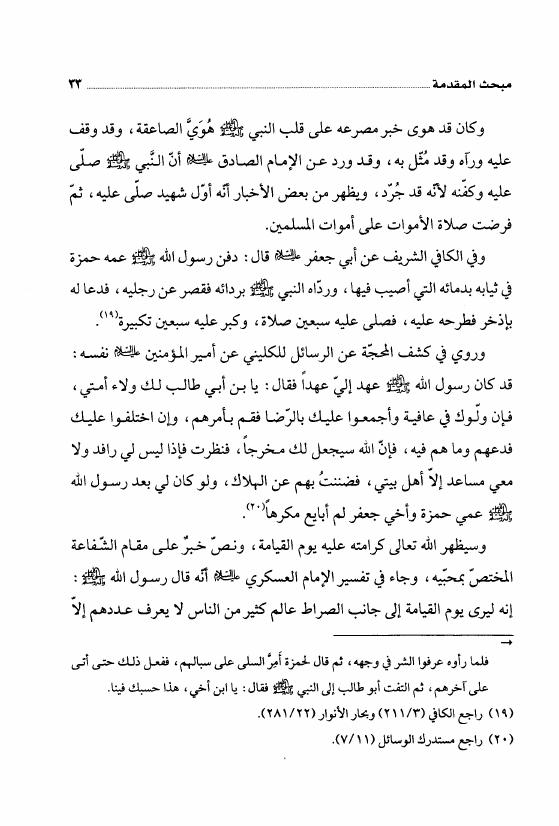 مبحث المقدمة ............ ٣٣
وكان قد هوى خبر مصرعه على قلب النبي ﷺ هُوَيَّ الصاعقة، وقد وقف
عليه ورآه وقد مُثّل به، وقد ورد عن الإمام الصادق عليه السلام أنّ النَّبي ﷺ صلّى
عليه وكفّنه لأنّه قد جُرّد، ويظهر من بعض الأخبار أنّه أوّل شهيد صلّى عليه، ثمّ
فرضت صلاة الأموات على أموات المسلمين.
وفي الكافي الشريف عن أبي جعفر عليه السلام قال: دفن رسول الله ﷺ عمه حمزة
في ثيابه بدمائه التي أصيب فيها، وردّاه النبي ﷺ بردائه فقصر عن رجليه، فدعا له
بإذخر فطرحه عليه، فصلى عليه سبعين صلاة، وكبر عليه سبعين تكبيرة(١٩).
وروي في كشف المحجّة عن الرسائل للكليني عن أمير المؤمنين عليه السلام نفسه:
قد كان رسول الله ﷺ عهد إليّ عهداً فقال: يا بن أبي طالب لك ولاء أمتي،
فإن ولّوك في عافية وأجمعوا عليك بالرّضا فقم بأمرهم، وإن اختلفوا عليك
فدعهم وما هم فيه، فإنّ الله سيجعل لك مخرجاً، فنظرت فإذا ليس لي رافد ولا
معي مساعد إلاّ أهل بيتي، فضننتُ بهم عن الهلاك، ولو كان لي بعد رسول الله
ﷺ عمي حمزة وأخي جعفر لم أبايع مكرهاً(٢٠).
وسيظهر الله تعالى كرامته عليه يوم القيامة، ونصّ خبرٌ على مقام الشّفاعة
المختصّ بمحبّيه، وجاء في تفسير الإمام العسكري عليه السلام أنّه قال رسول الله ﷺ:
إنه ليرى يوم القيامة إلى جانب الصراط عالم كثير من الناس لا يعرف عددهم إلاّ
→
فلما رأوه عرفوا الشر في وجهه، ثم قال لحمزة أَمِرَّ السلى على سبالهم، ففعل ذلك حتى أتى
على آخرهم، ثم التفت أبو طالب إلى النبي ﷺ فقال: يا ابن أخي، هذا حسبك فينا.
(١٩) راجع الكافي (٢١١/٣) وبحار الأنوار (٢٨١/٢٢).
(٢٠) راجع مستدرك الوسائل (٧/١١).